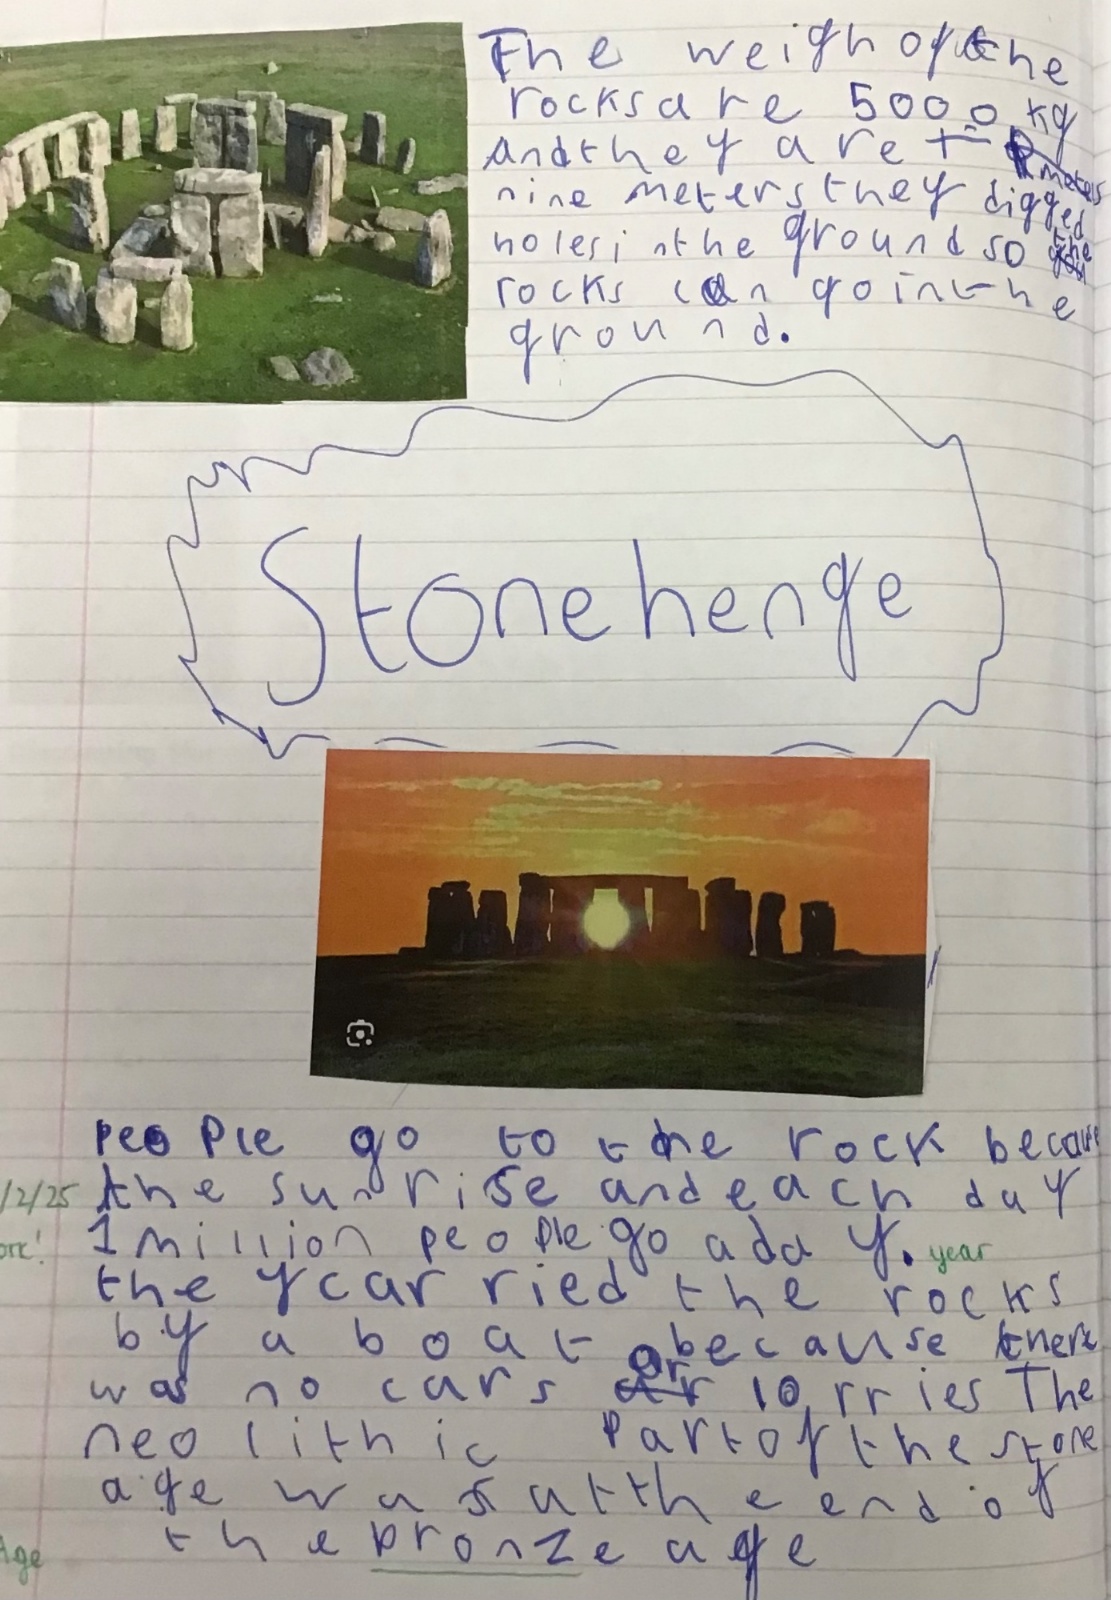 The weigh of the
rocks are 5000 kg
and they are
meters
nine meters they digged
holes in the ground so the
rocks can go in the
ground.
Stonehenge
people go to the rock because
/2/25 the sun rise and each day
ork! 1 million people go a day. year
they carried the rocks
by a boat because there
was no cars or lorries The
neolithic part of the stone
age was at the end of
Age the bronze age